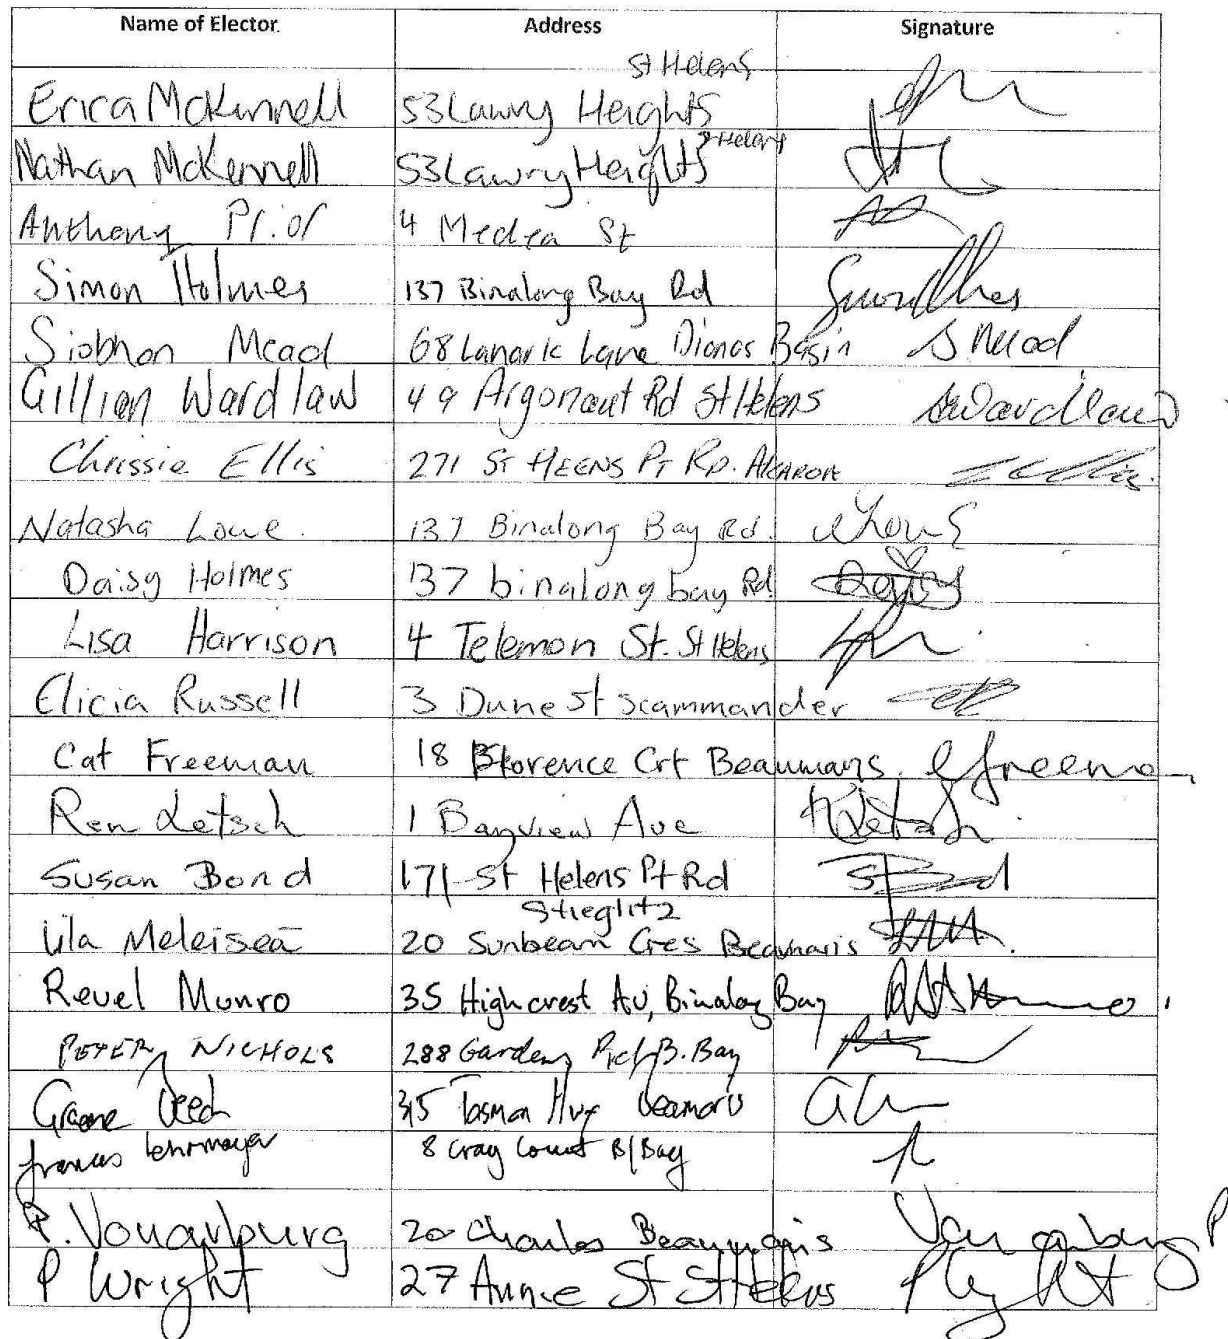 Name of Elector Address Signature
St Helens
Erica McKennell 53 Lawry Heights
St Helens
Nathan McKennell 53 Lawry Heights
Anthony Prior 4 Medea St
Simon Holmes 137 Binalong Bay Rd
Siobhan Mead 68 Lanark Lane Dianas Basin S. Mead
Gillian Wardlaw 49 Argonaut Rd St Helens
Chrissie Ellis 271 ST HEENS PT RD. AKAROA
Natasha Lowe. 137 Binalong Bay Rd.
Daisy Holmes 137 binalong bay Rd
Lisa Harrison 4 Telemon St. St Helens
Elicia Russell 3 Dune St Scammander
Cat Freeman 18 Florence Crt Beaumaris
Ren Letsch 1 Bayview Ave
Susan Bond 171 St Helens Pt Rd
Stieglitz
Meleiseā 20 Sunbeam Cres Beaumaris
Revel Munro 35 Highcrest Av, Binalong Bay
PETER NICHOLS 288 Gardens B. Bay
Graeme 315 Tasman Hwy Beamaris
8 Court B/Bay
P. Vonarburg 20 Charles Beaumaris
P Wright 27 Annie St St Helens